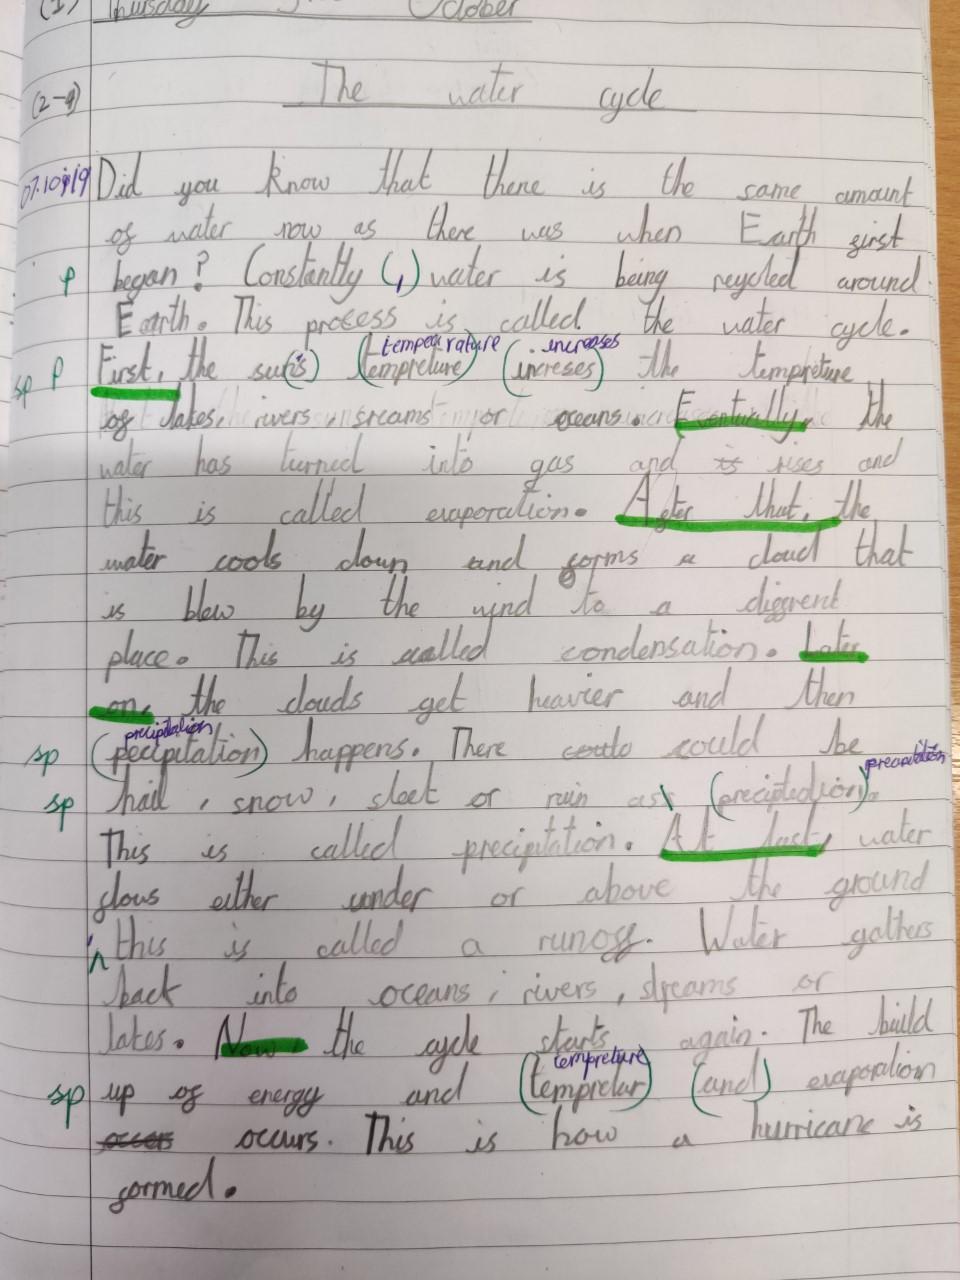 (1) Thursday October
(2-9) The water cycle
Did you know that there is the same amount
of water now as there was when Earth first
p began? Constantly (,) water is being recycled around
Earth. This process is called the water cycle.
increases
sp p First, the sun(s) (tempreture) (increses) the tempreture
of lakes, rivers, sreams or oceans. Eventurally, the
water has turned into gas and rises and
this is called evaporation. After that, the
water cools down and forms a cloud that
is blew by the wind to a diffrent
place. This is called condensation. Later
on, the clouds get heavier and then
precipitation
sp (pecipitation) happens. There could be
precipitation
sp hail, snow, sleet or rain as
This is called precipitation. At last, water
flows either under or above the ground
this is called a runoff. Water gathers
back into oceans, rivers, streams or
lakes. Now, the cycle starts again. The build
tempreture
sp up of energy and (tempretur) (and) evaporation
occurs. This is how a hurricane is
formed.